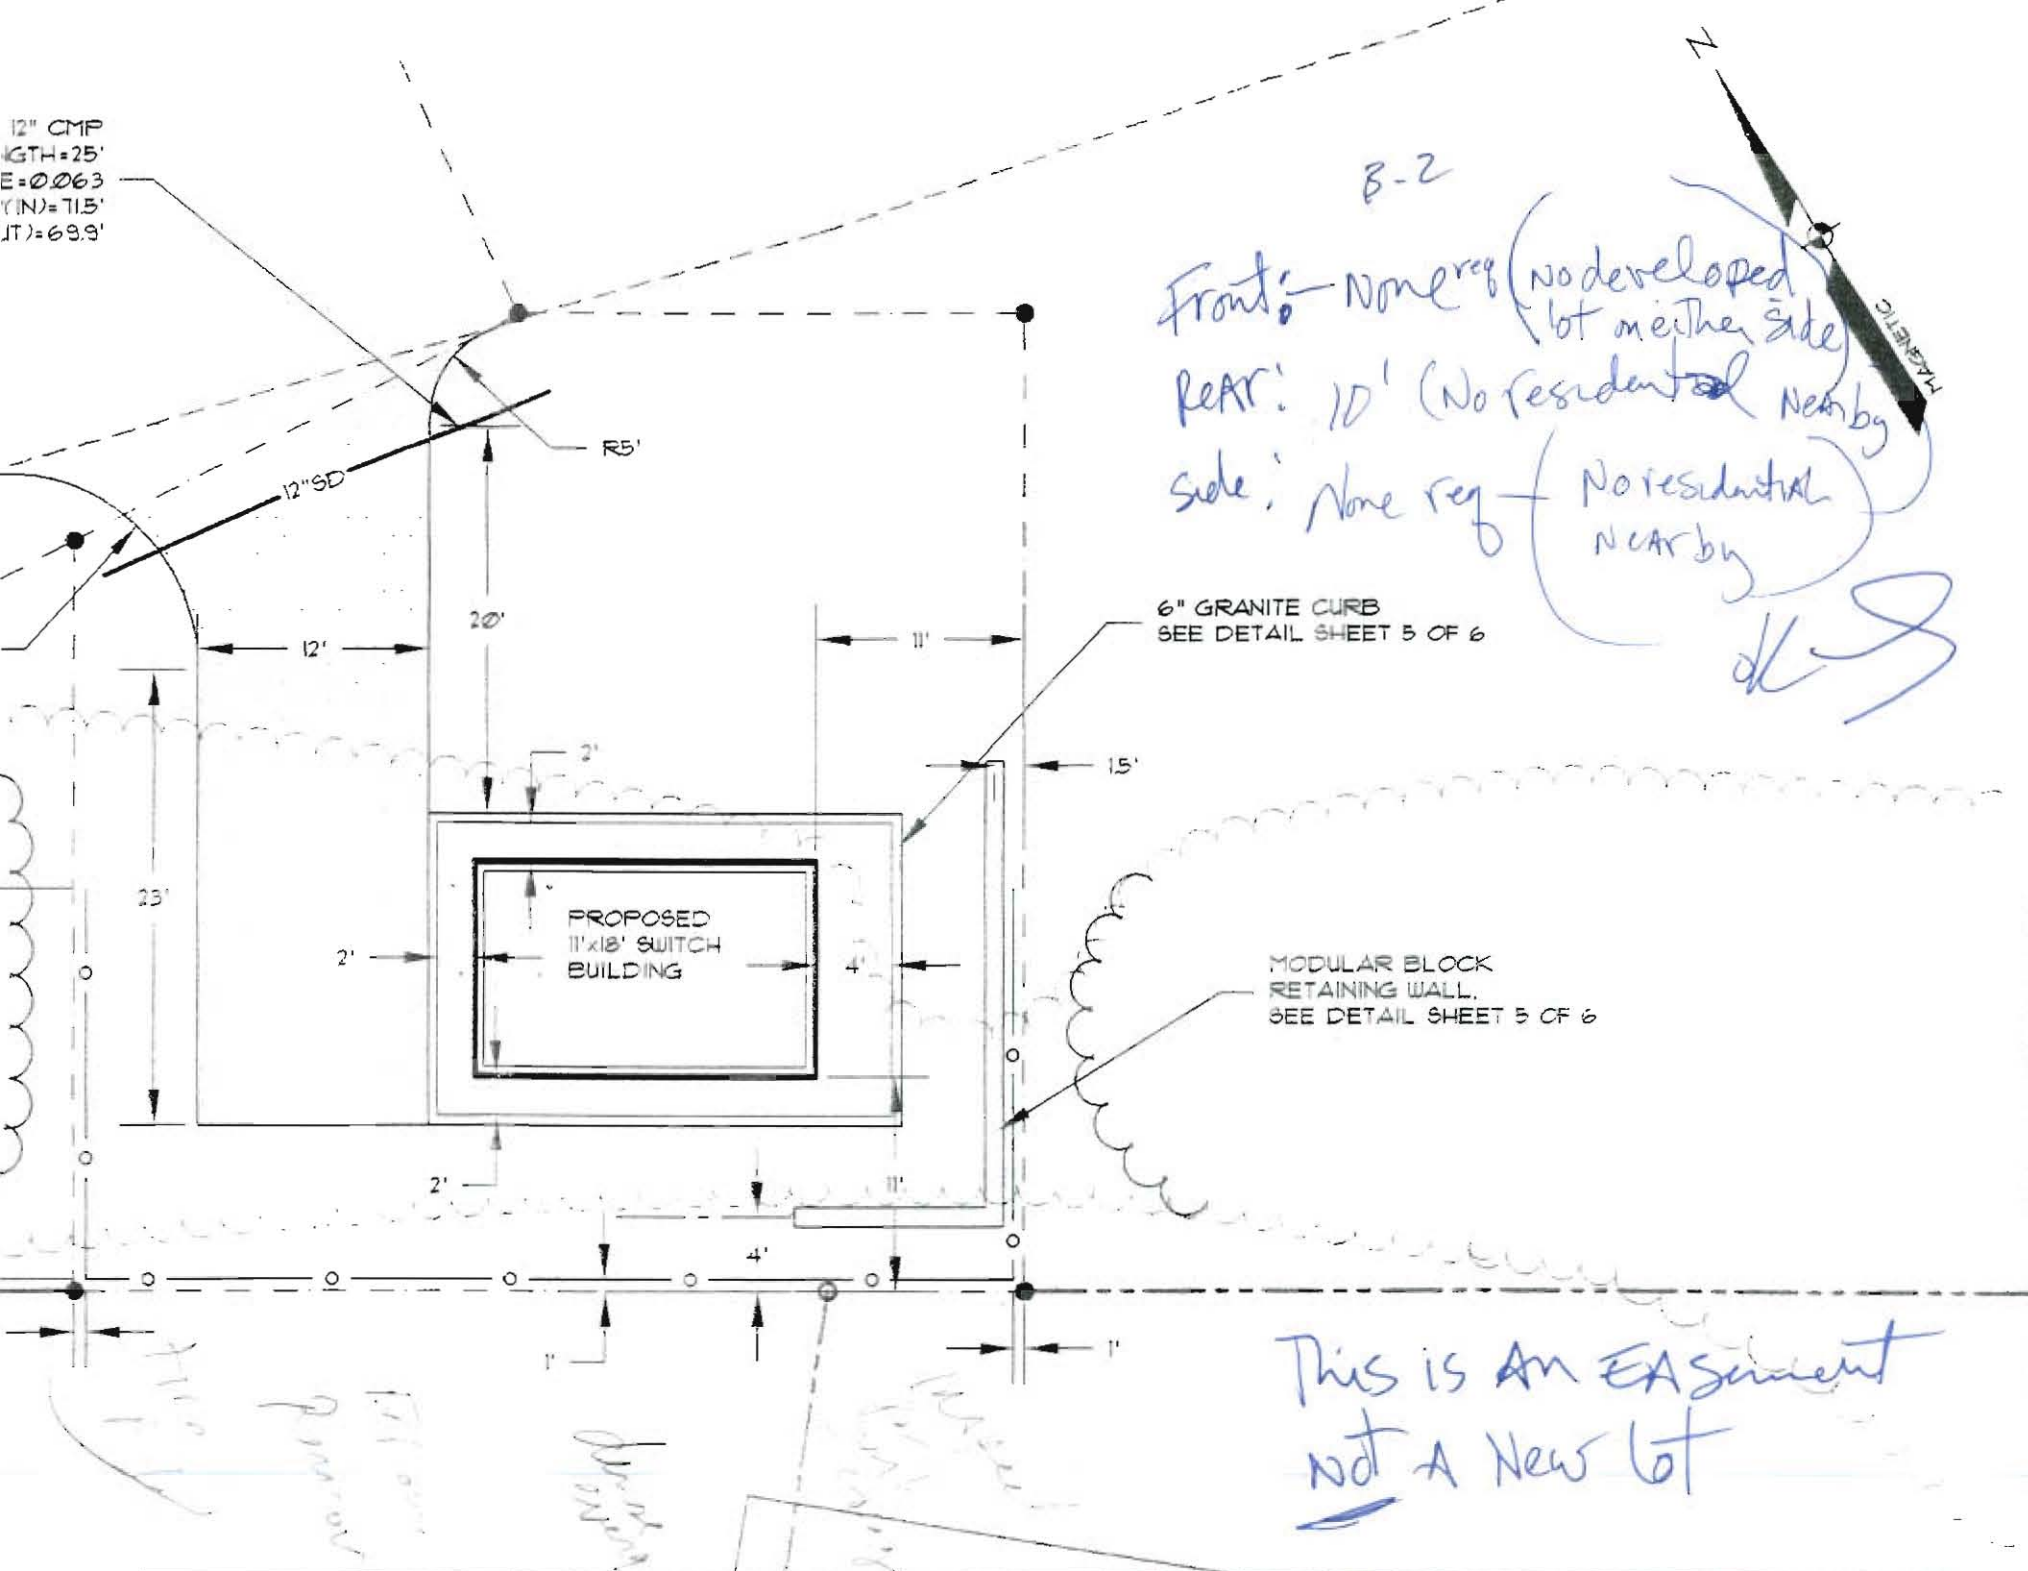 12" CMP
NGTH=25'
E=0.063
Y(IN)=71.5'
UT)=69.9'
N
MAGNETIC
B-2
Front: - None req (No developed
lot on either side)
Rear: 10' (No residential Nearby
side: None req - (No residential
Nearby)
OK
R5'
12"SD
20'
12'
11'
6" GRANITE CURB
SEE DETAIL SHEET 5 OF 6
2'
1.5'
23'
PROPOSED
11'x18' SWITCH
BUILDING
2'
4'
MODULAR BLOCK
RETAINING WALL.
SEE DETAIL SHEET 5 OF 6
2'
11'
4'
1'
1'
This is An EASement
not A New lot